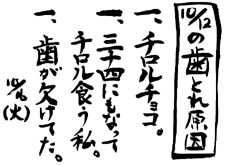 10/12の歯とれ原因
一、チロルチョコ。
一、三十四にもなって
チロル食う私。
一、歯が欠けてた。
10/16(火)